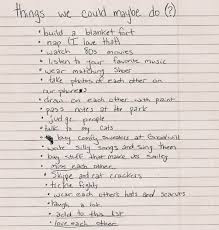 things we could maybe do (?)
• build a blanket fort
• nap (I love that)
• watch 80s movies
• listen to your favorite music
• wear matching shoes
• take photos of each other on
our phones
• draw on each other with paint
• pass notes at the park
• judge people
• talk to my cats
• buy comfy sweaters at Goodwill
• write silly songs and sing them
• buy stuff that makes us smiley
• miss each other
• Skype and eat crackers
• tickle fights
• wear each others hats and scarves
• laugh a lot
• add to this list
• love each other